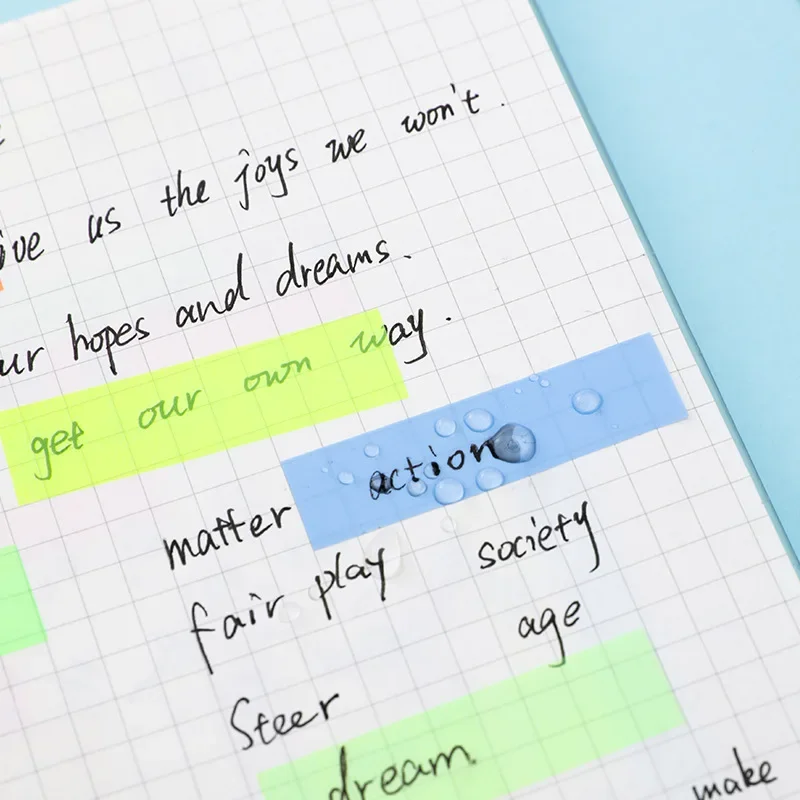 us the joys we won't.
hopes and dreams.
get our own way.
action
matter
fair play society
age
Steer
dream.
make